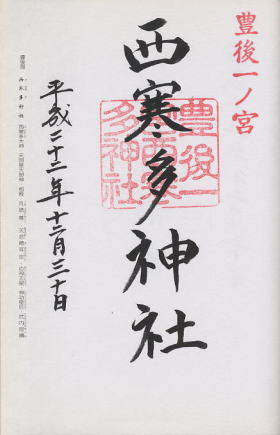 豊後一ノ宮
西寒多神社
豊後一
宮西寒
多神社
平成二十二年十二月三十日